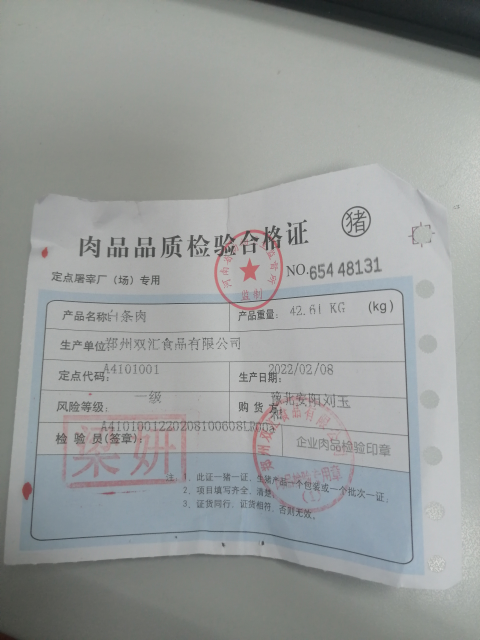 肉品品质检验合格证 猪
定点屠宰厂（场）专用 NO.654 48131
监制
产品名称:白条肉 产品重量: 42.61 KG (kg)
生产单位:郑州双汇食品有限公司
定点代码: A4101001 生产日期: 2022/02/08
风险等级: 一级 购货 豫北安阳刘玉
检验员(签章): A4101001220208100608L
梁妍 企业肉品检验印章
注: 1、此证一猪一证，生猪产品一个包装或一个批次一证。
2、项目填写齐全，清楚。
3、证货同行，证货相符，否则无效。